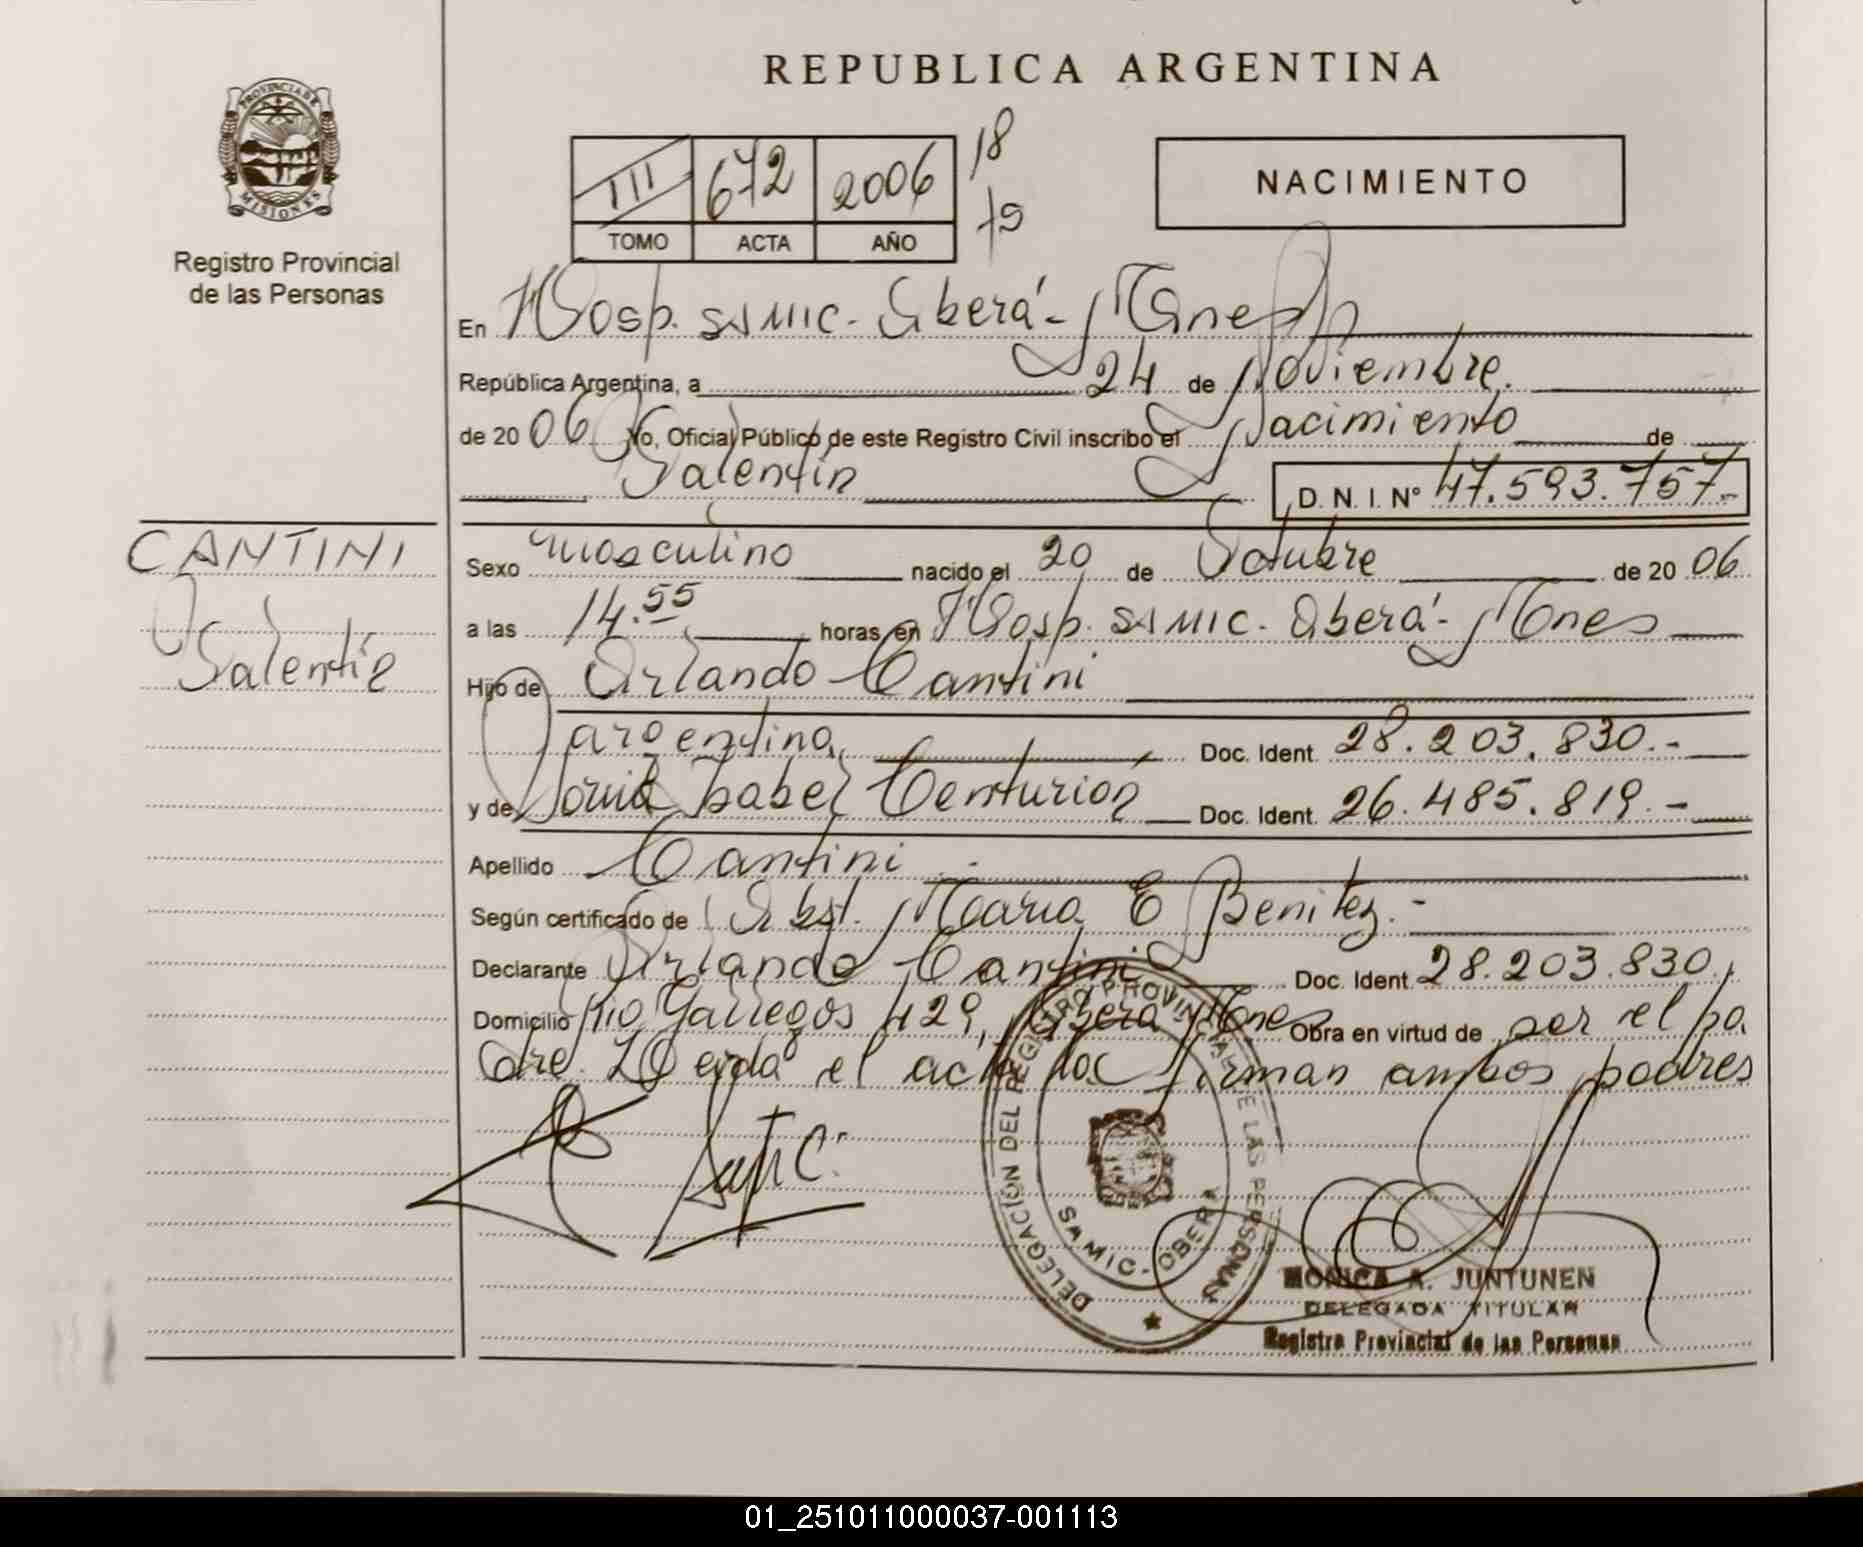 REPUBLICA ARGENTINA
PROVINCIA DE
MISIONES
Registro Provincial
de las Personas
III 672 2006 18
TOMO ACTA AÑO 19
NACIMIENTO
En Hosp. SAMIC. Oberá - Mnes
República Argentina, a 24 de Noviembre.
de 2006 Yo, Oficial Público de este Registro Civil inscribo el Nacimiento de
Valentín D. N. I. Nº 47.593.757.-
CANTINI
Valentín
Sexo masculino nacido el 20 de Octubre de 2006
a las 14.55 horas en Hosp. SAMIC. Oberá - Mnes
Hijo de Orlando Cantini
argentino, Doc. Ident. 28.203.830.-
y de Isabel Centurión Doc. Ident. 26.485.819.-
Apellido Cantini.
Según certificado de Obst. Maria E Benitez.-
Declarante Orlando Cantini Doc. Ident. 28.203.830.,
Domicilio Rio Gallegos 429, Oberá Mnes Obra en virtud de ser el pa
dre. Leida el acta la firman ambos padres
DELEGACIÓN DEL REGISTRO PROVINCIAL DE LAS PERSONAS
SAMIC - OBERA
MONICA A. JUNTUNEN
DELEGADA TITULAR
Registro Provincial de las Personas
01_251011000037-001113